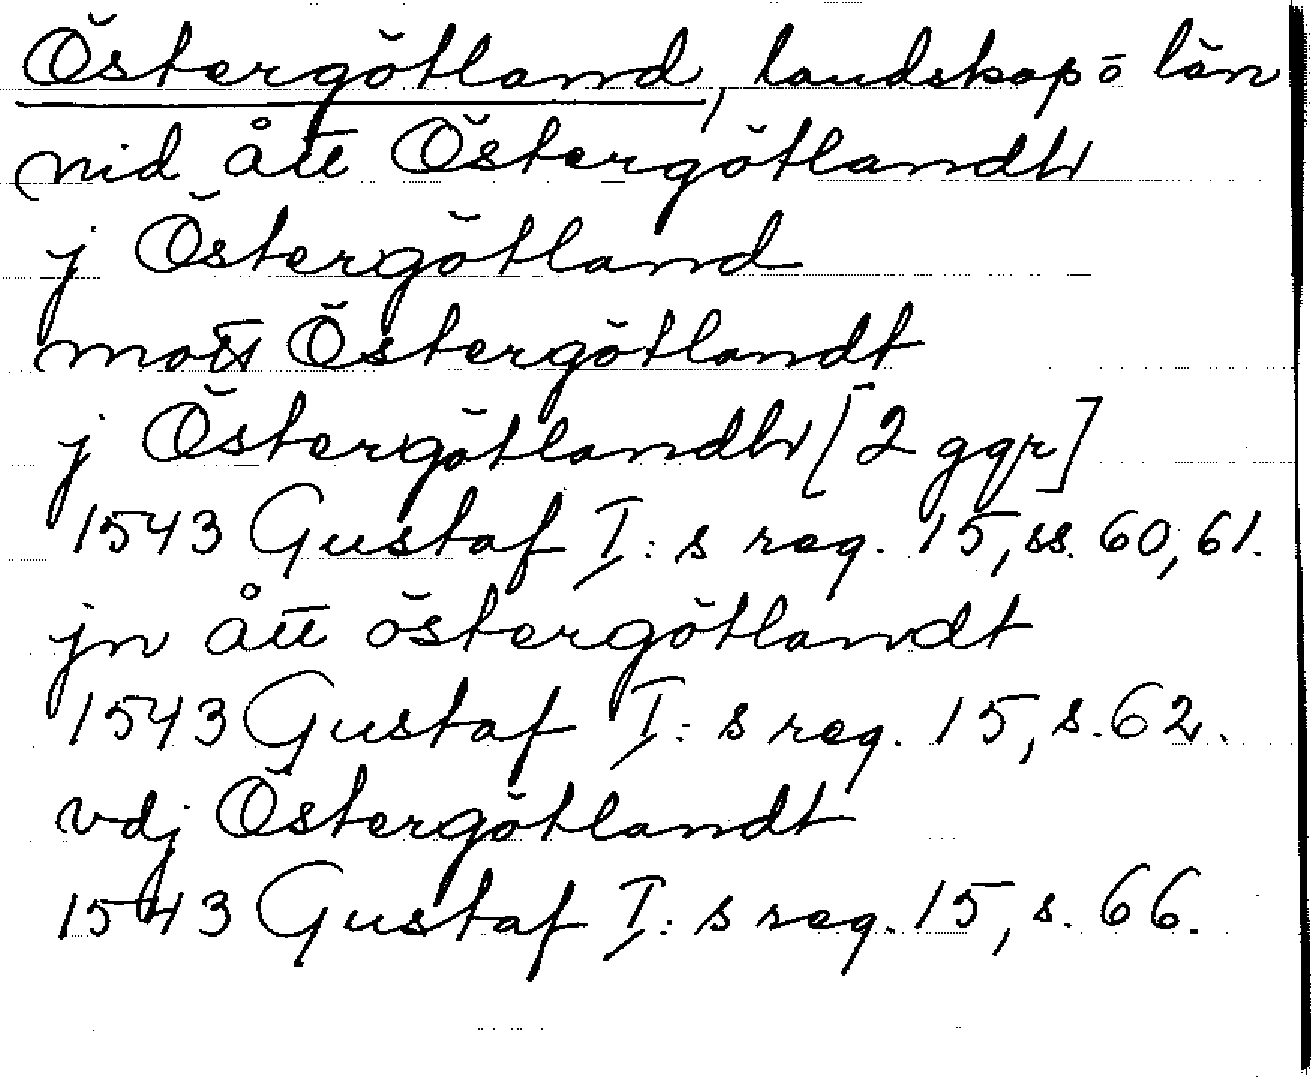 Östergötland, landskap o län
nidått Östergötlandh
j Östergötland
mott Östergötlandt
j Östergötlandh [2 ggr]
1543 Gustaf I: s reg. 15, ss. 60, 61.
jnått östergötlandt
1543 Gustaf I: s reg. 15, s. 62.
vdj Östergötlandt
1543 Gustaf I: s reg. 15, s. 66.